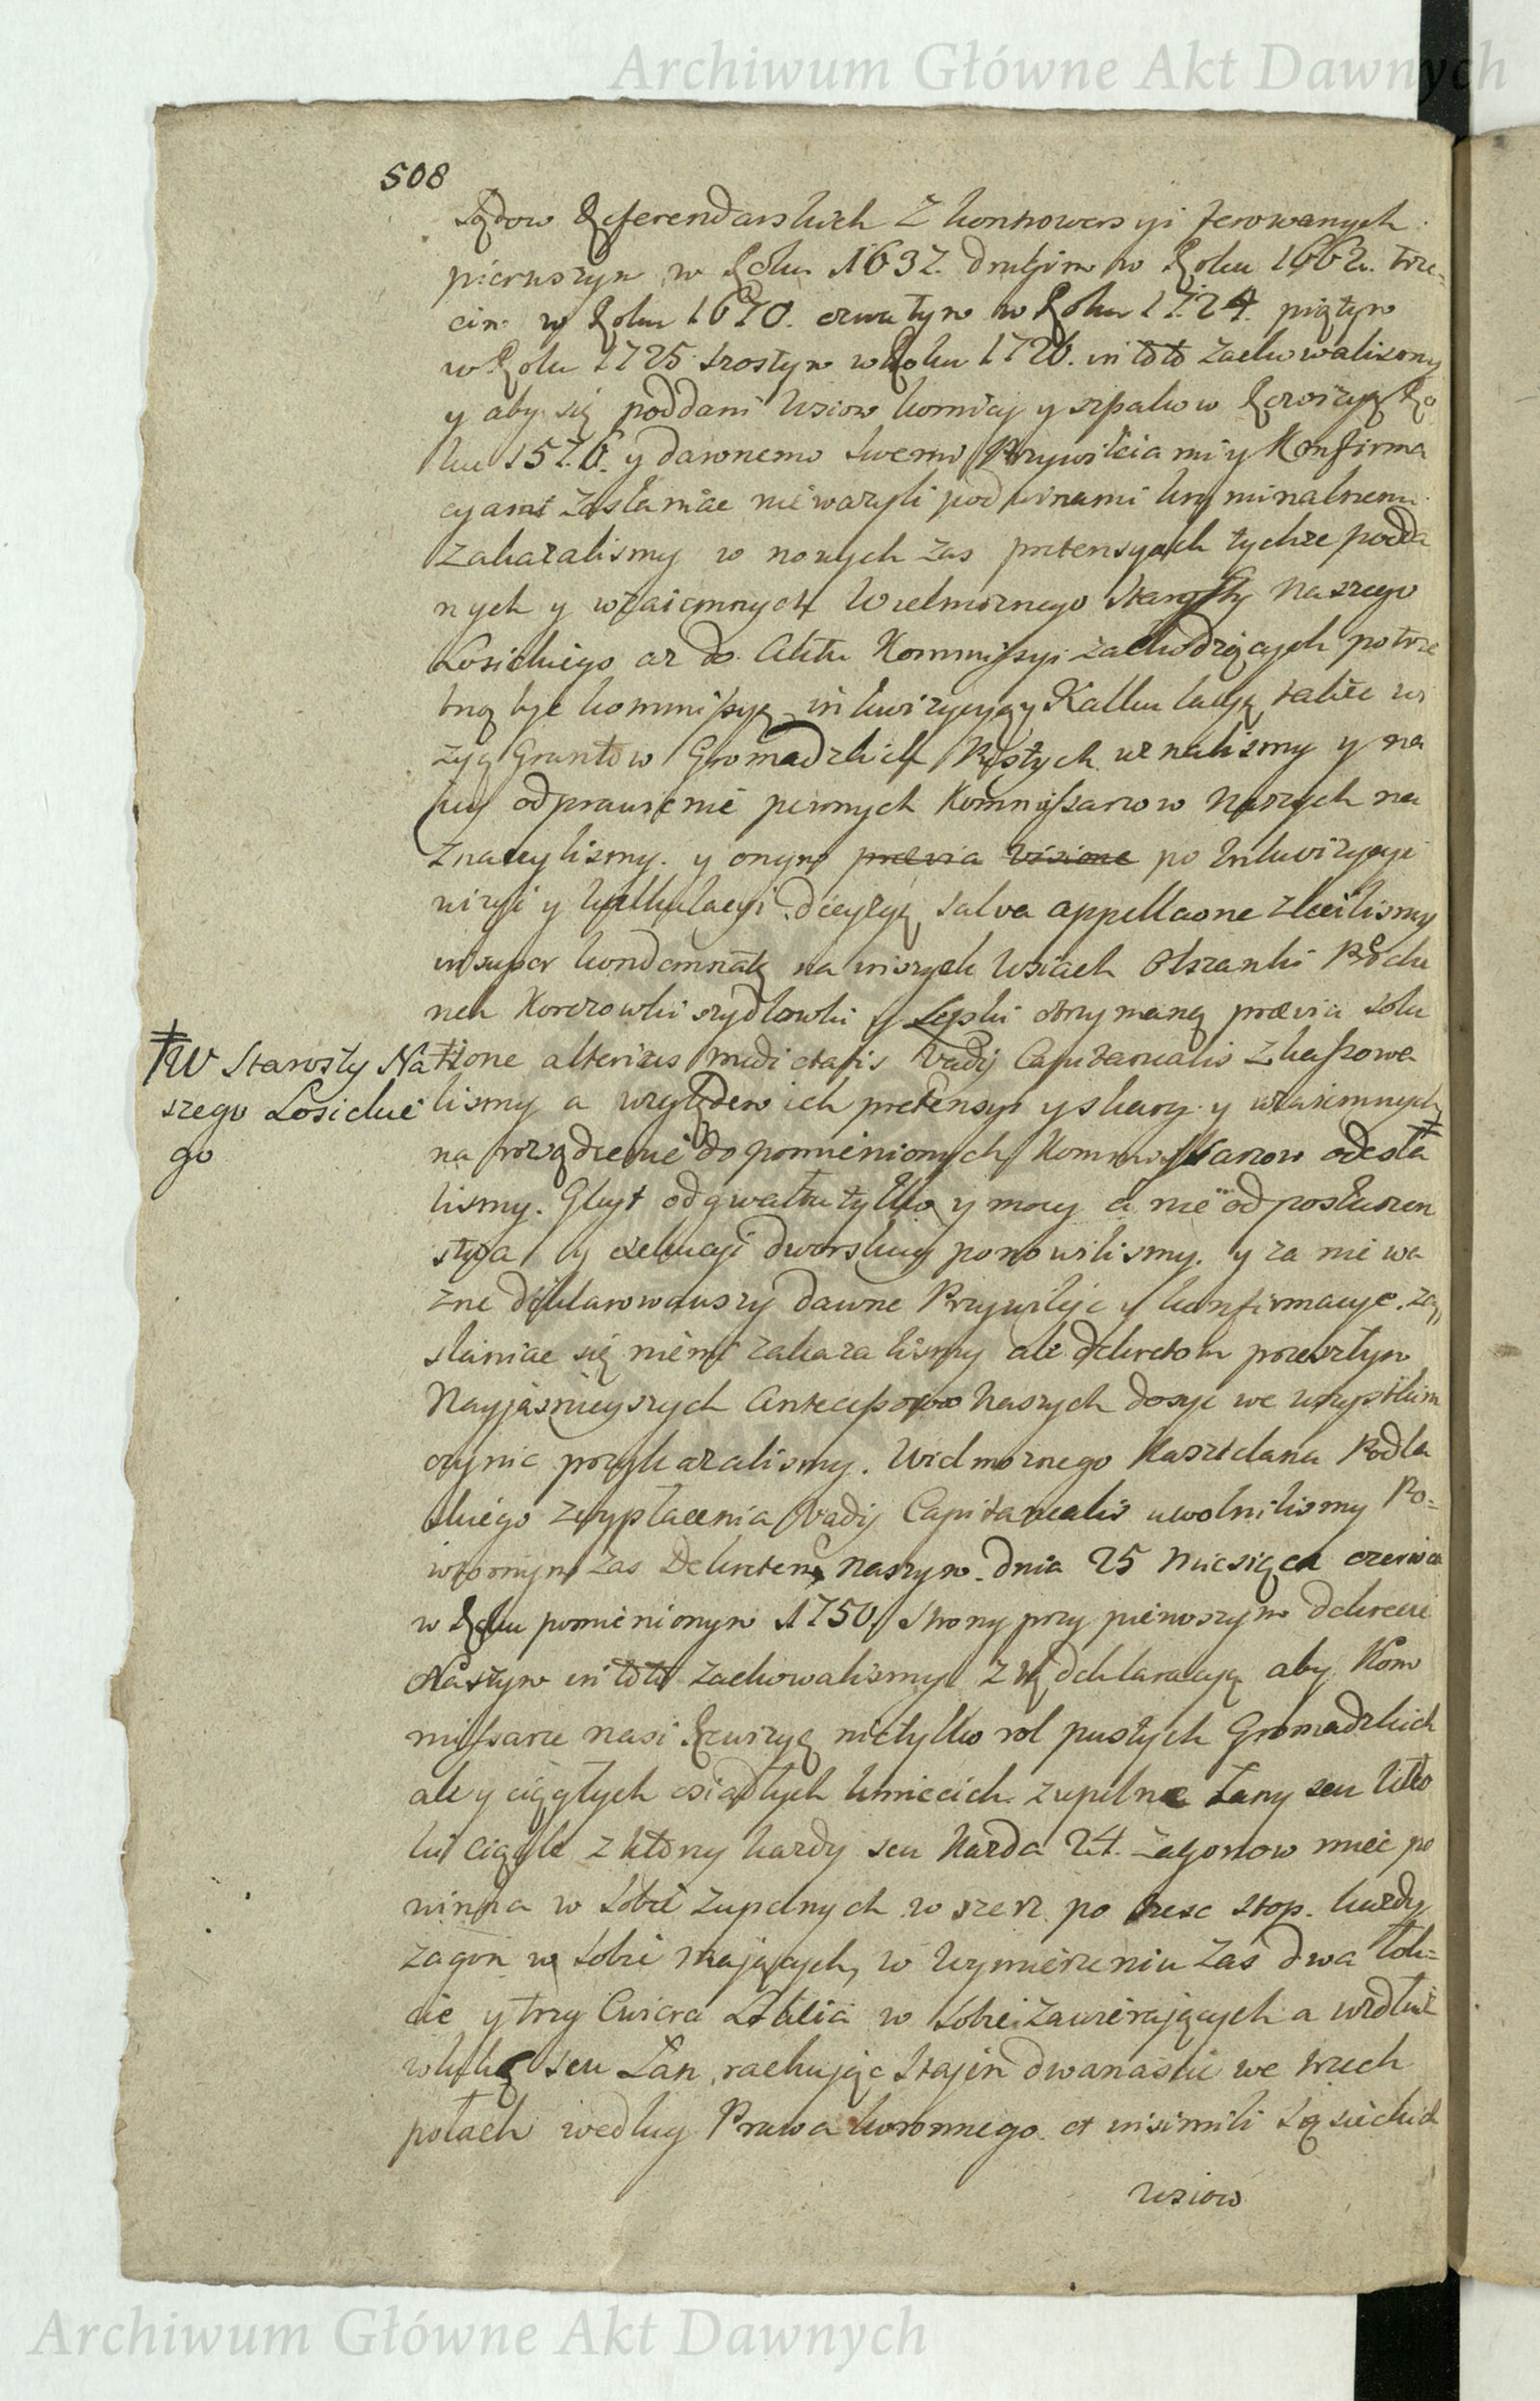 Archiwum Główne Akt Dawnych
508
Sądow Referendarskich z kontrowersyi ferowanych
pierwszym w Roku 1637. drugim w Roku 1662. trze-
cim w Roku 1670. czwartym w Roku 1724. piątym
w Roku 1725 szostym w Roku 1726. in toto zachowalismy
y aby się poddani wsiow Kornicy y szpakow Rewizyą Ro
ku 1570. y dawnemi swemi Przywileiami y Konfirma
cyami zasłaniac nie wazyli pod winami kryminalnemi
zakazalismy w nowych zas pretensyach tychze podda
nych y wzaiemnych Wielmoznego Starosty Naszego
Łosickiego az do Aktu Kommissyi zachodzących potrze
bną byc kommissyą inkwizycyą y Kalkulacyą takze wi
zyą Gruntow Gromadzkich Pustych uznalismy y na
iey odprawienie pewnych Kommissarzow Naszych na
znaczylismy. y onym prævia visione po Inkwizycyi
wizyi y kalkulacyi decyzyą salva appellaone zlecilismy
insuper kondemnatę na inszych wsiach Olszanki
nek Korczowki szydłowki y otrzymaną prævia solu
tione alterius medietatis vadij Capitanealis zkassowa
†W Starosty Na
szego Łosickie
go
lismy a względem ich pretensyi y skarg y wzaiemnych ‡
na rozsądzenie do pomienionych Kommissarzow odesła
lismy. Gleyt od gwałtu tylko y mocy a nie od posłuszen
stwa y exekucyi dworskiey ponowilismy. y za niewa
zne deklarowawszy dawne Przywileje y konfirmacye. za„
słaniac się niemi zakazalismy ale dekretom przeszłym
Nayjasnieyszych Antecessorow Naszych dosyc we wszystkim
czynic przykazalismy. Wielmoznego Kasztelana Podla
skiego z wypłacenia vadij Capitanealis uwolnilismy Po-
wtornym zas Dekretem Naszym dnia 25 Miesiąca czerwca
w Roku pomienionym 1750. Strony przy pierwszym dekrecie
Naszym in toto zachowalismy z tą deklaracyą aby Kom
missarze nasi Rewizyą nietylko rol pustych Gromadzkich
ale y ciągłych osiadłych kmiecich zupełne Łany seu Wło
ki ciągłe z ktory kazdy seu kazda 24. zagonow miec po
winna w sobie zupełnych w szerz po szesc stop. kazdy
zagon w sobie maiących, w wymierzeniu zas dwa łok-
cie y trzy cwierci łokcia w sobie zawieraiących a wzdłuz
włokę seu Łan rachuiąc stajen dwanascie we trzech
polach według Prawa koronnego et in simili sąsiedzkich
wsiow
Archiwum Główne Akt Dawnych